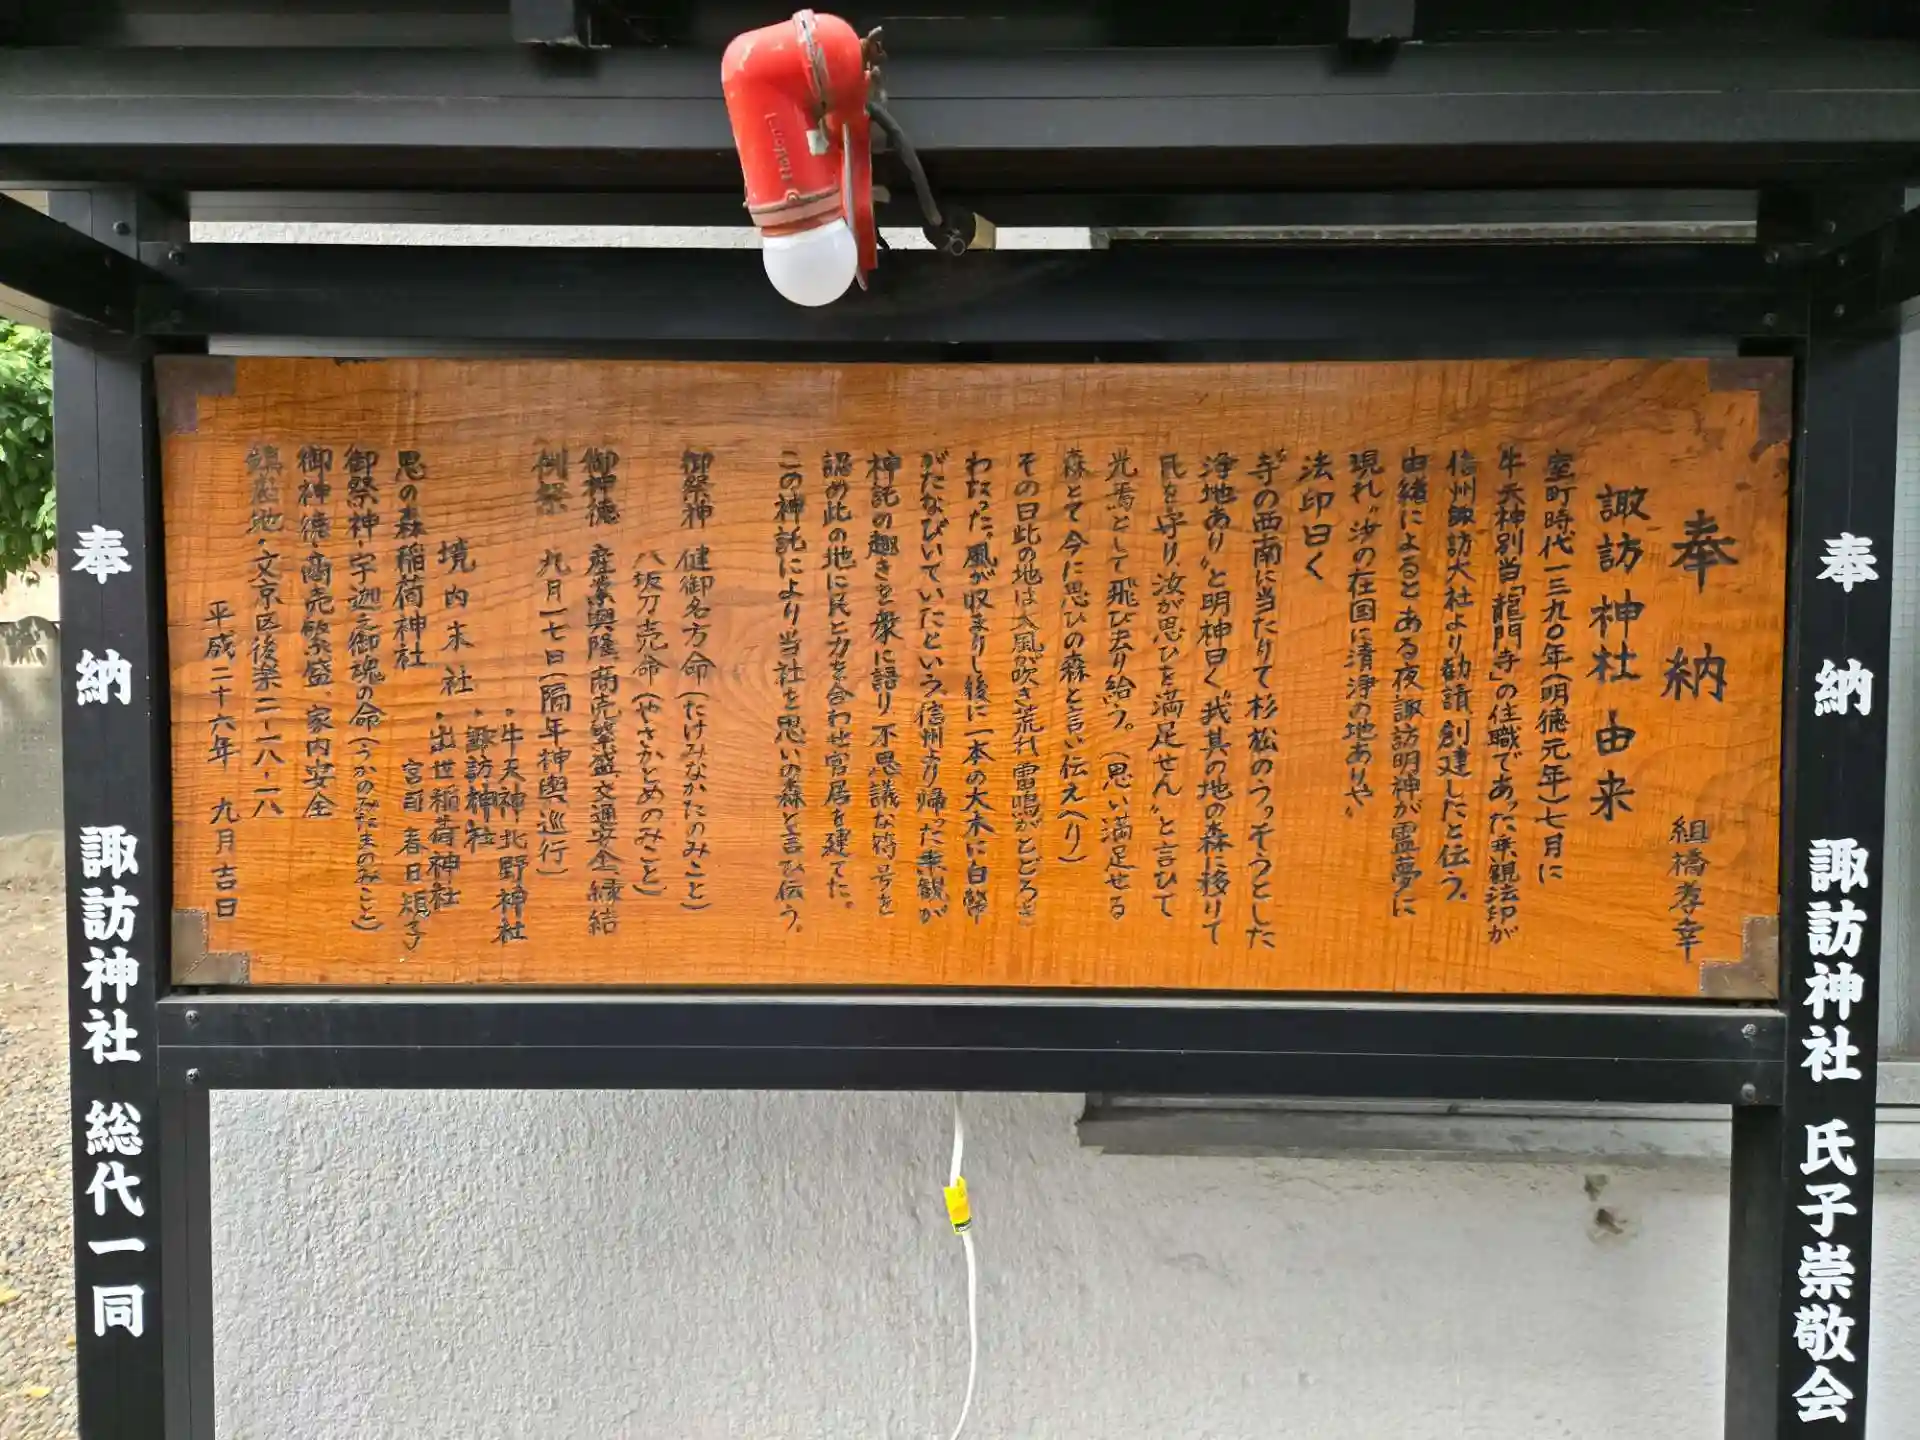 奉納 諏訪神社 氏子崇敬会
奉納
組橋孝幸
諏訪神社由来
室町時代一三九〇年(明徳元年)七月に
牛天神別当「龍門寺」の住職であった乗観法印が
信州諏訪大社より勧請、創建したと伝う。
由緒によるとある夜諏訪明神が霊夢に
現れ〝汝の在国に清浄の地ありや〟
法印曰く
〝寺の西南に当たりて杉松のうっそうとした
浄地あり〟と明神曰く〝我其の地の森に移りて
氏を守り、汝が思ひを満足せん〟と言ひて
光焉として飛び去り給う。(思い満足せる
森とて今に思ひの森と言い伝えへり)
その日此の地は大風が吹き荒れ雷鳴がとどろき
わたった。風が収まりし後に一本の大木に白幣
がたなびいていたという。信州より帰った乗観が
神託の趣きを衆に語り、不思議な符号を
認め此の地に民と力を合わせ宮居を建てた。
この神託により当社を思いの森と言ひ伝う。
御祭神 健御名方命(たけみなかたのみこと)
八坂刀売命(やさかとめのみこと)
御神徳 産業興隆、商売繁盛、交通安全、縁結
例祭 九月二七日(隔年神輿巡行)
境内末社
・牛天神北野神社
・諏訪神社
・出世稲荷神社
思の森稲荷神社
宮司 春日
御祭神・宇迦之御魂の命(うかのみたまのみこと)
御神徳・商売繁盛、家内安全
鎮座地・文京区後楽二-一八-一八
平成二十六年 九月吉日
奉納 諏訪神社 総代一同